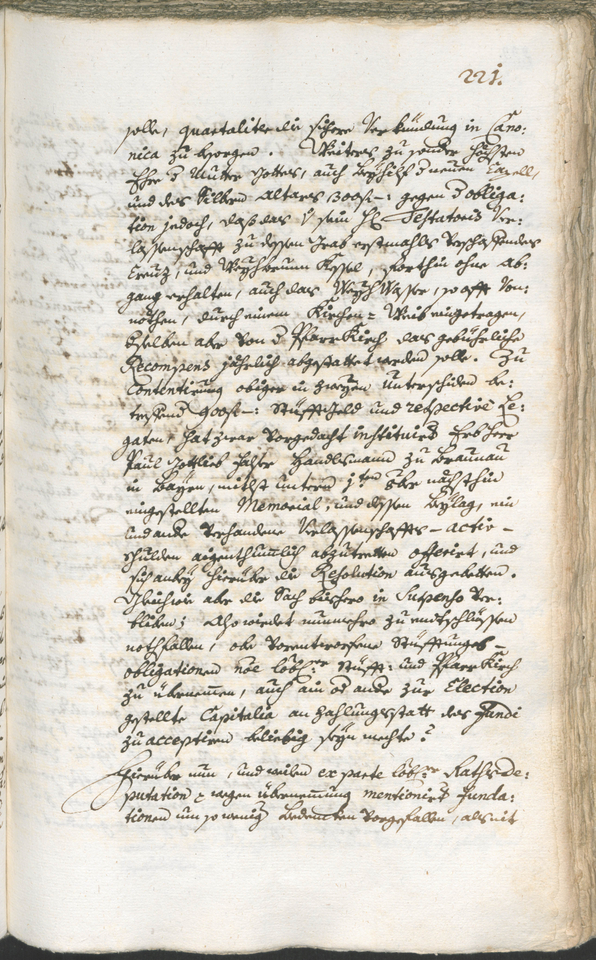 221.
solle, quartaliter die sichere Verkündung in Cano-
nica zu besorgen. Weiters zu sonder höchsten
Ehre der Mutter Gottes, auch Beyhilf der neuen Capell,
und des Silbern Altars 300 fl -: gegen der obliga-
tion jedoch, daß das sein H: Testatoris Ver-
lassenschafft zu dessen Grab erstmahls verschaffendes
Creuz, und Weyhbrunn Kessel, forthin ohne Ab-
gang erhalten, auch das Weyh Wasser, so offt von-
nöthen, durch einen Kirchen- Weib eingetragen,
derselben aber von der Pfarr Kirch das gebührliche
Recompens jährlich abgestattet werden solle. Zu
Contentirung obiger in zweyen unterschiden be-
treffend 900 fl -: Stüfftgeld und respective Le-
gaten, hat zwar vorgedacht instituirter Erb Herr
Paul Gottlieb Handlsmann zu Braunau
in Bayrn, mitls unterm 1ten 8ber nächsthin
eingestellten Memorial, und dessen Beylag, ein
und andere verhandene Verlassenschaffts - activ -
schulden aigenthumlich abzutretten offerirt, und
sich anbey hierüber die Resolution ausgebetten.
Gleichwie aber die Sach bishero in Suspenso ver-
bliben; Also wirdet nunmehro zu entschlüssen
nothfallen, ob vorentworfene Stüfftungs
obligationen noe löbl:r Stüfft: und Pfarr Kirch
zu übernemmen, auch ain od andere zur Election
gestellte Capitalia an Zahlungsstatt des Fundi
zu acceptiren beliebig seyn mechte?
Hierüber nun, und weilen ex parte löbl:r Raths De-
putation wegen übernemmung mentionirter Funda-
tionen um so wenig Bedencken vorgefallen, als mit